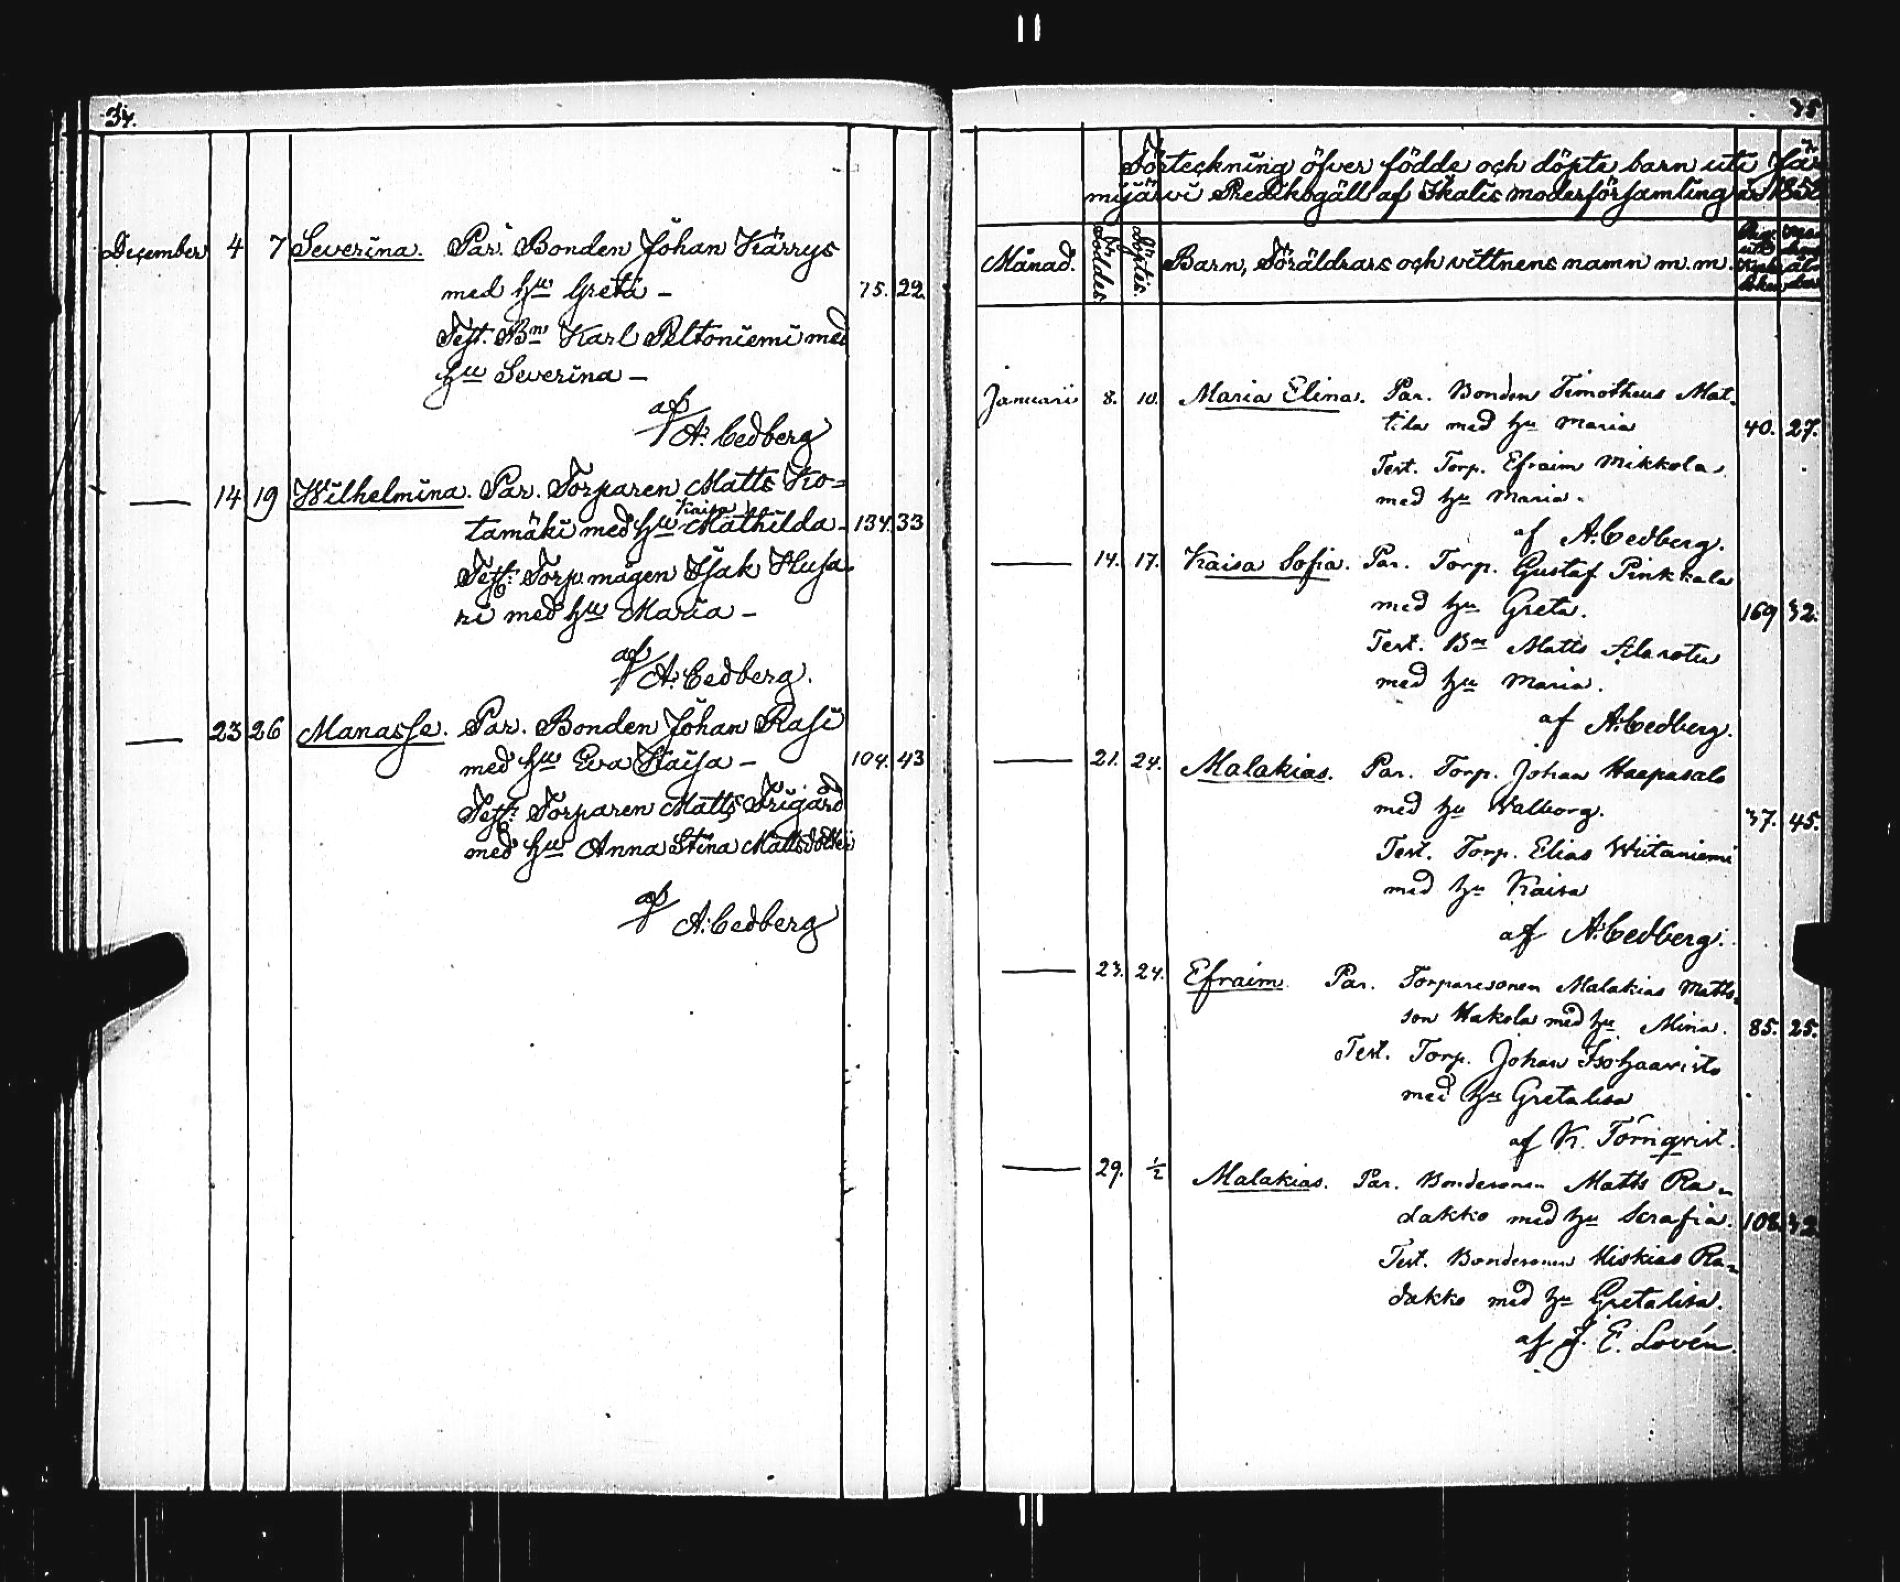 34.
December 4 7 Severina. Par. Bonden Johan Kärrys
med hu Greta - 75. 22.
Test. Bn Karl Peltoniemi med
hu Severina -
af A. Cedberg
— 14 19 Wilhelmina. Par. Torparen Matts Ko=
Kaisa
tamäki med hu Mathilda - 134. 33
Test: Torp. mågen Isak Husa
ri med hu Maria -
af A. Cedberg.
— 23 26 Manasse. Par. Bonden Johan Rasi
med hu Eva Kaisa - 104. 43
Test: Torparen Matts Frigård
med hu Anna Stina Mattsdotter
af A. Cedberg
35
Förteckning öfver födde och döpte barn uti Jä
mijärvi Predikogäll af Ikalis moderförsamling
Månad. Föddes. Döptes. Barn, Föräldrars och vittnens namn m. m.
Januarii 8. 10. Maria Elina. Par. Bonden Timotheus Mat-
tila med hu Maria 40. 27.
Test. Torp. Efraim Mikkola
med hu Maria.
af A. Cedberg.
— 14. 17. Kaisa Sofia. Par. Torp. Gustaf Pinkkala
med hu Greta. 169 32.
Test. Bn Matts Alarotu
med hu Maria.
af A. Cedberg.
— 21. 24. Malakias. Par. Torp. Johan Haapasalo
med hu Walborg. 37. 45.
Test. Torp. Elias Wiitaniemi
med hu Kaisa
af A. Cedberg.
— 23. 24. Efraim. Par. Torparesonen Malakias Matts-
son Hakola med hu Mina. 85. 25.
Test. Torp. Johan Isohaavisto
med hu Gretalisa
af K. Törnqvist.
— 29. 1/2 Malakias. Par. Bondesonen Matts Ra-
dakko med hu Serafia. 108. 32
Test. Bondesonen Hiskias Ra-
dakko med hu Gretalisa.
af J. E. Lovén.